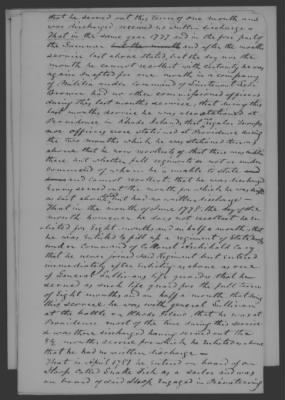 that he served out this term of one month and
was discharged, received no written discharge
That in the same year 1777 and in the fore part of
the Summer and after the months
service last above stated, but the day nor the
month he cannot recollect with certainty he was
again drafted for one month in a company
of Militia under command of Lieutenant
Brownie had no other commissioned officers
during this last months service, that during this
last months service he was also stationed at
Providence in Rhode Island, that Regular troops
nor officers were stationed at Providence during
the two months which he was stationed there
above that he now recollects of that there was
there but whether full regiments or not or under
command of whom he is unable to state
and cannot recollect that he was discharged
having served out the month for which he was
as last above, but had no written discharge
That in the month of June 1778 the day of the
month however he does not recollect he en
listed for Eight months and an half a month that
he was enlisted to fill up a regiment of State
under a Command of Colonel Archibald Crary
that he never joined said Regiment but entered
immediately after enlisting as above as one
of General Sullivans life guards that he
served as such life guard for the full term
of Eight months and an half a month that during
this service he was with general Sullivan
at the battle on Rhode Island, that he was at
Providence most of the time during this service
& was there discharged having served out the
8½ months service for which he enlisted as above
that he had no written discharge
That in April 1781 he entered on board of an
Sloop Called Snake Fish as a sailor and was
on board of said Sloop engaged in Privateering